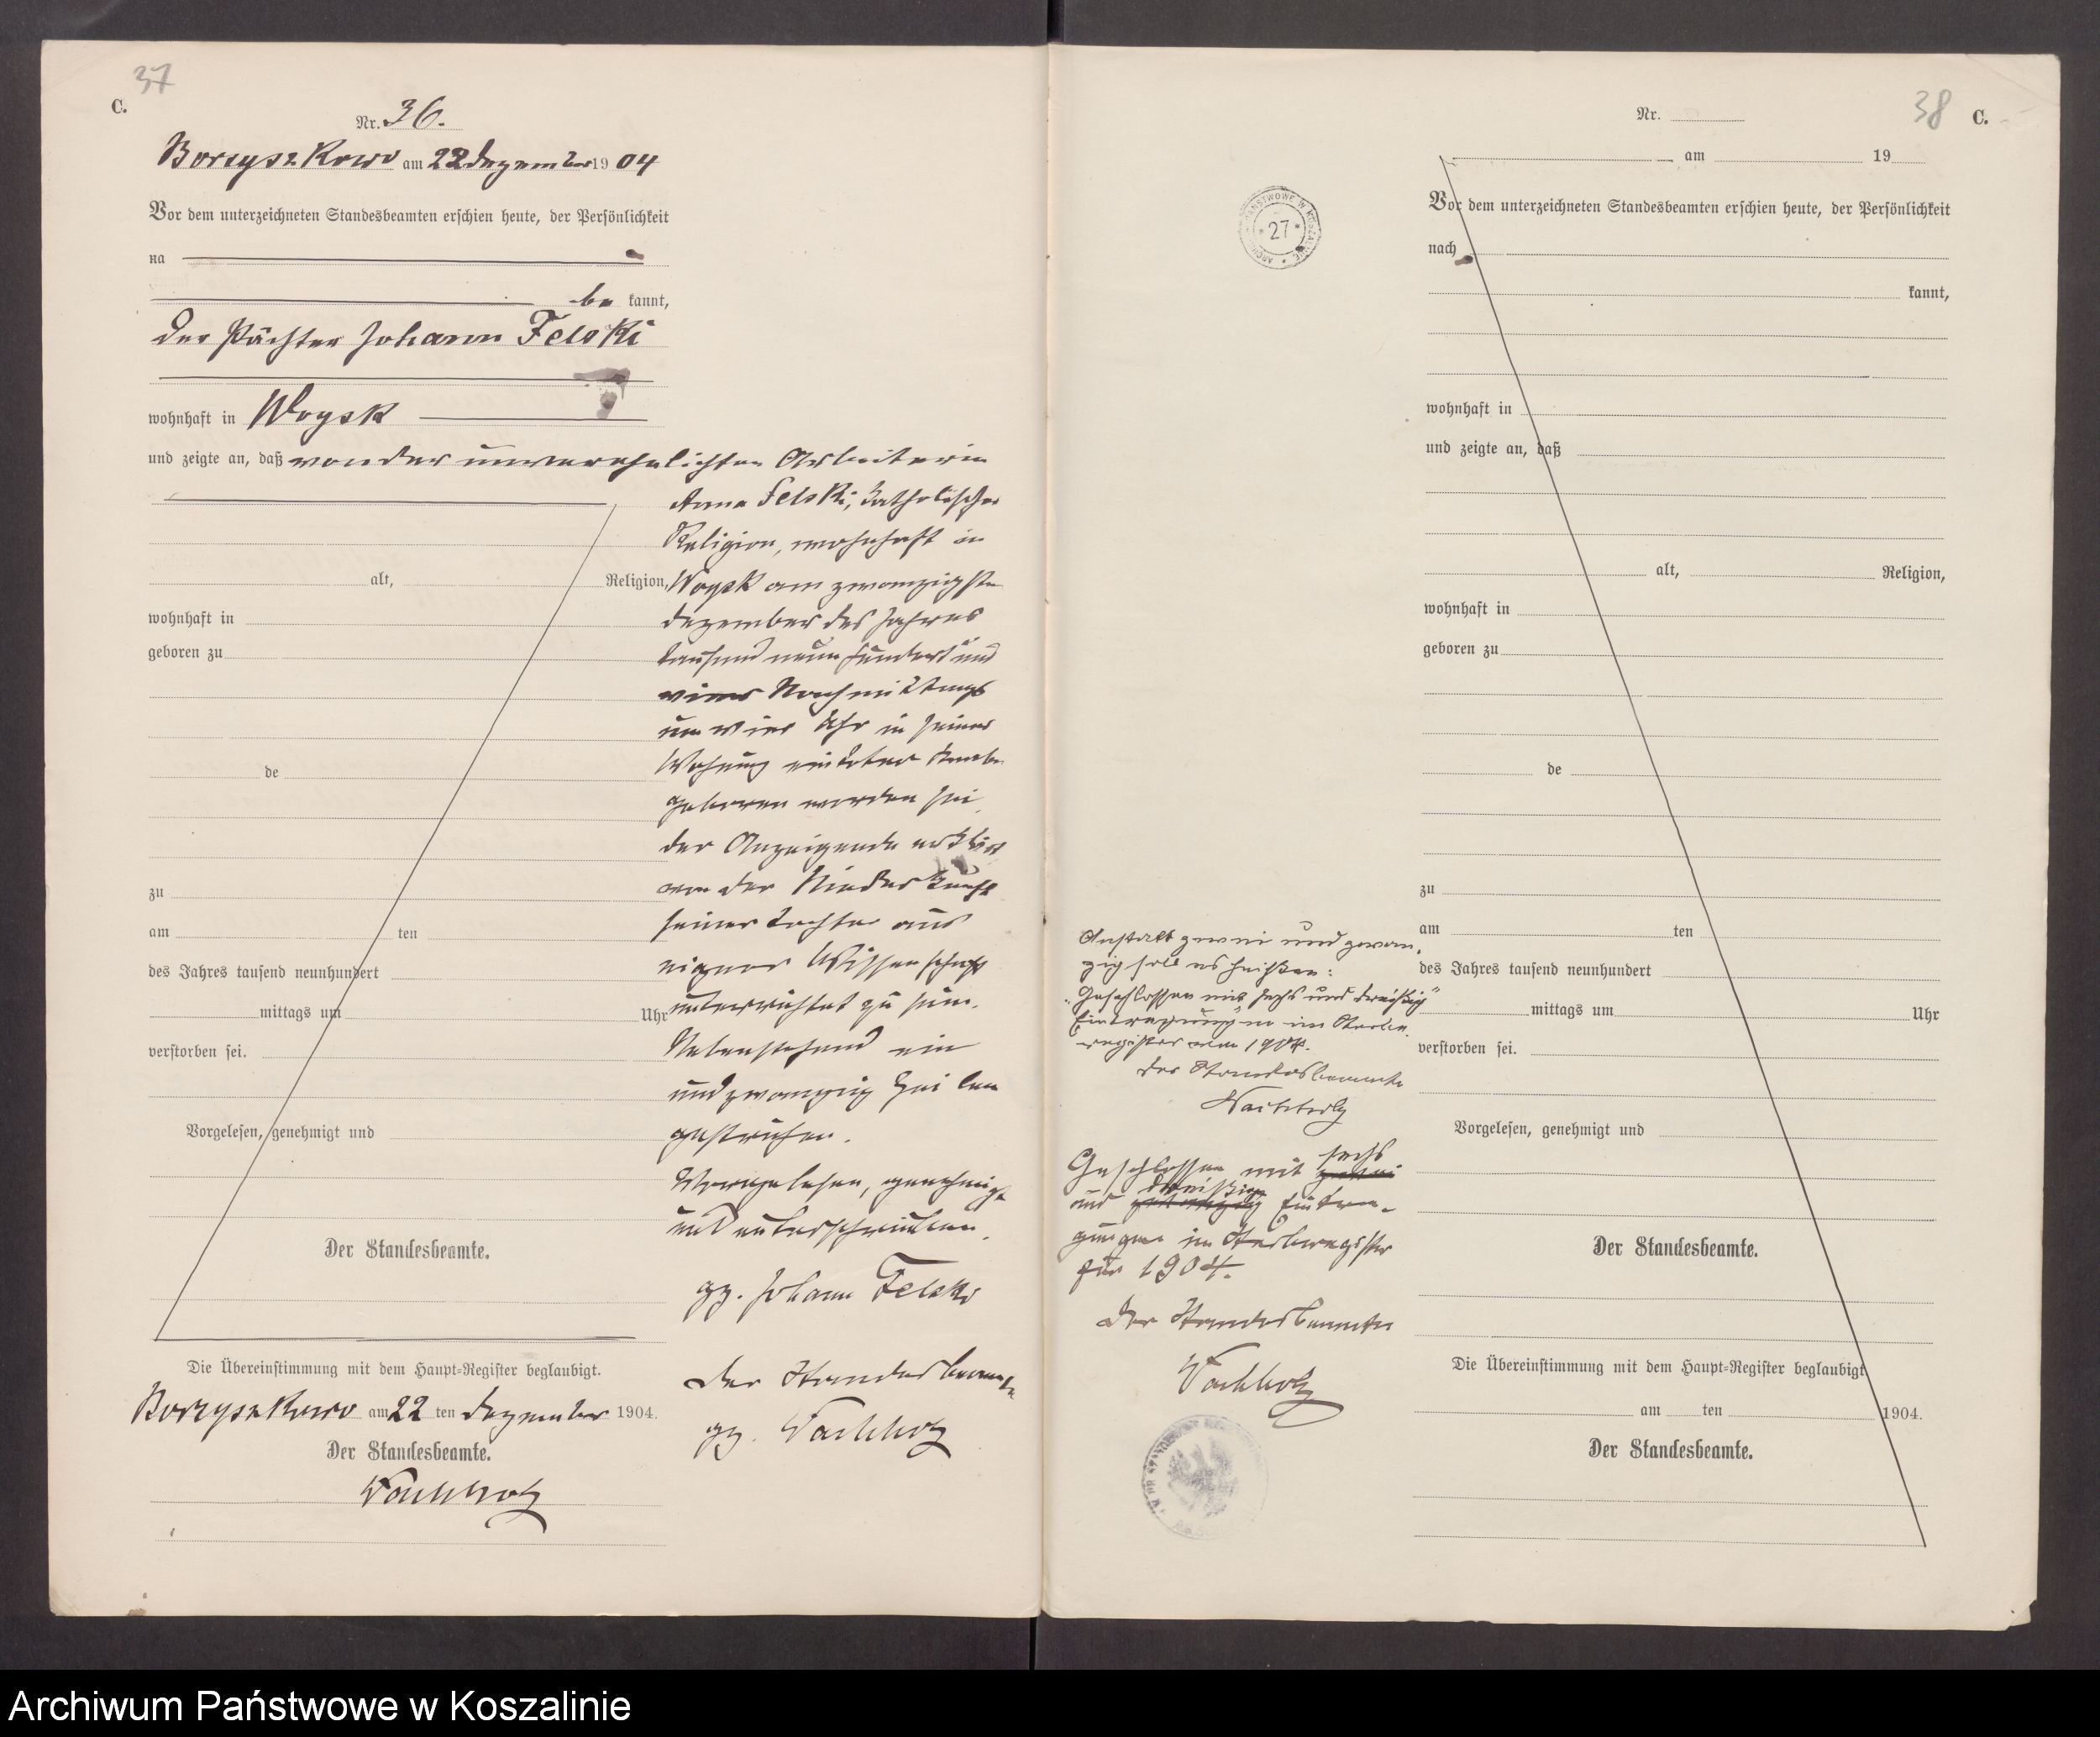 37
C.
Nr. 36.
Borzyszkowo am 22 Dezember 1904
Vor dem unterzeichneten Standesbeamten erschien heute, der Persönlichkeit
na
be kannt,
der Pächter Johann Felski
wohnhaft in Woysk
und zeigte an, daß von der unverehelichten Arbeiterin
Anna Felski, katholischer
Religion, wohnhaft in
alt, Religion, Woysk am zwanzigsten
wohnhaft in
Dezember des Jahres
geboren zu
tausend neunhundert und
vier Nachmittags
um vier Uhr in seiner
Wohnung ein toter Knabe
de
geboren worden sei
der Anzeigende erklärt
von der Niederkunft
zu
seiner Tochter aus
am ten
eigner Wissenschaft
des Jahres tausend neunhundert
unterrichtet zu sein.
mittags um Uhr
Nebenstehend ein
verstorben sei.
und zwanzig Zeilen
gestrichen.
Vorgelesen, genehmigt und
Vorgelesen, genehmigt
und unterschrieben.
Der Standesbeamte.
gz. Johann Felski
Der Standesbeamte
gz. Wachholz
Die Übereinstimmung mit dem Haupt-Register beglaubigt.
Borzyszkowo am 22 ten Dezember 1904.
Der Standesbeamte.
Wachholz
38
C.
Nr.
am 19
Vor dem unterzeichneten Standesbeamten erschien heute, der Persönlichkeit
nach
kannt,
wohnhaft in
und zeigte an, daß
alt, Religion,
wohnhaft in
geboren zu
de
zu
am ten
des Jahres tausend neunhundert
mittags um Uhr
verstorben sei.
Vorgelesen, genehmigt und
Der Standesbeamte.
Die Übereinstimmung mit dem Haupt-Register beglaubigt
am ten 1904.
Der Standesbeamte.
27
Anstatt zwei und zwan-
zig soll es heißen:
"Geschlossen mit sechs und dreißig"
Eintragungen im Sterbe
register von 1904.
Der Standesbeamte
Wachholz
Geschlossen mit sechs zwei
und dreißig zwanzig Eintra-
gungen im Sterberegister
für 1904.
Der Standesbeamte
Wachholz
Archiwum Państwowe w Koszalinie